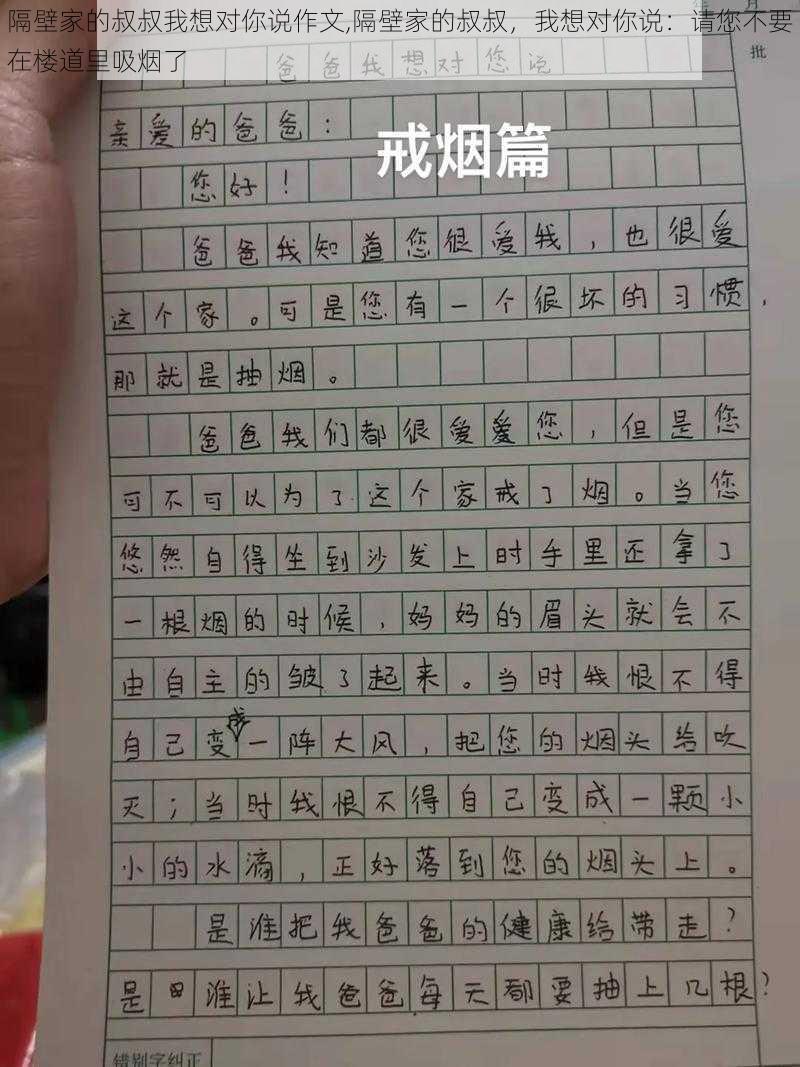 隔壁家的叔叔我想对你说作文,隔壁家的叔叔，我想对你说：请您不要
在楼道里吸烟了
年 月
批
爸爸我想对您说
戒烟篇
亲爱的爸爸：
您好！
爸爸我知道您很爱我，也很爱
这个家。可是您有一个很坏的习惯，
那就是抽烟。
爸爸我们都很爱爱您，但是您
可不可以为了这个家戒了烟。当您
悠然自得坐到沙发上时手里还拿了
一根烟的时候，妈妈的眉头就会不
由自主的皱了起来。当时我恨不得
自己变成一阵大风，把您的烟头给吹
灭；当时我恨不得自己变成一颗小
小的水滴，正好落到您的烟头上。
是谁把我爸爸的健康给带走？
是谁让我爸爸每天都要抽上几根？
错别字纠正